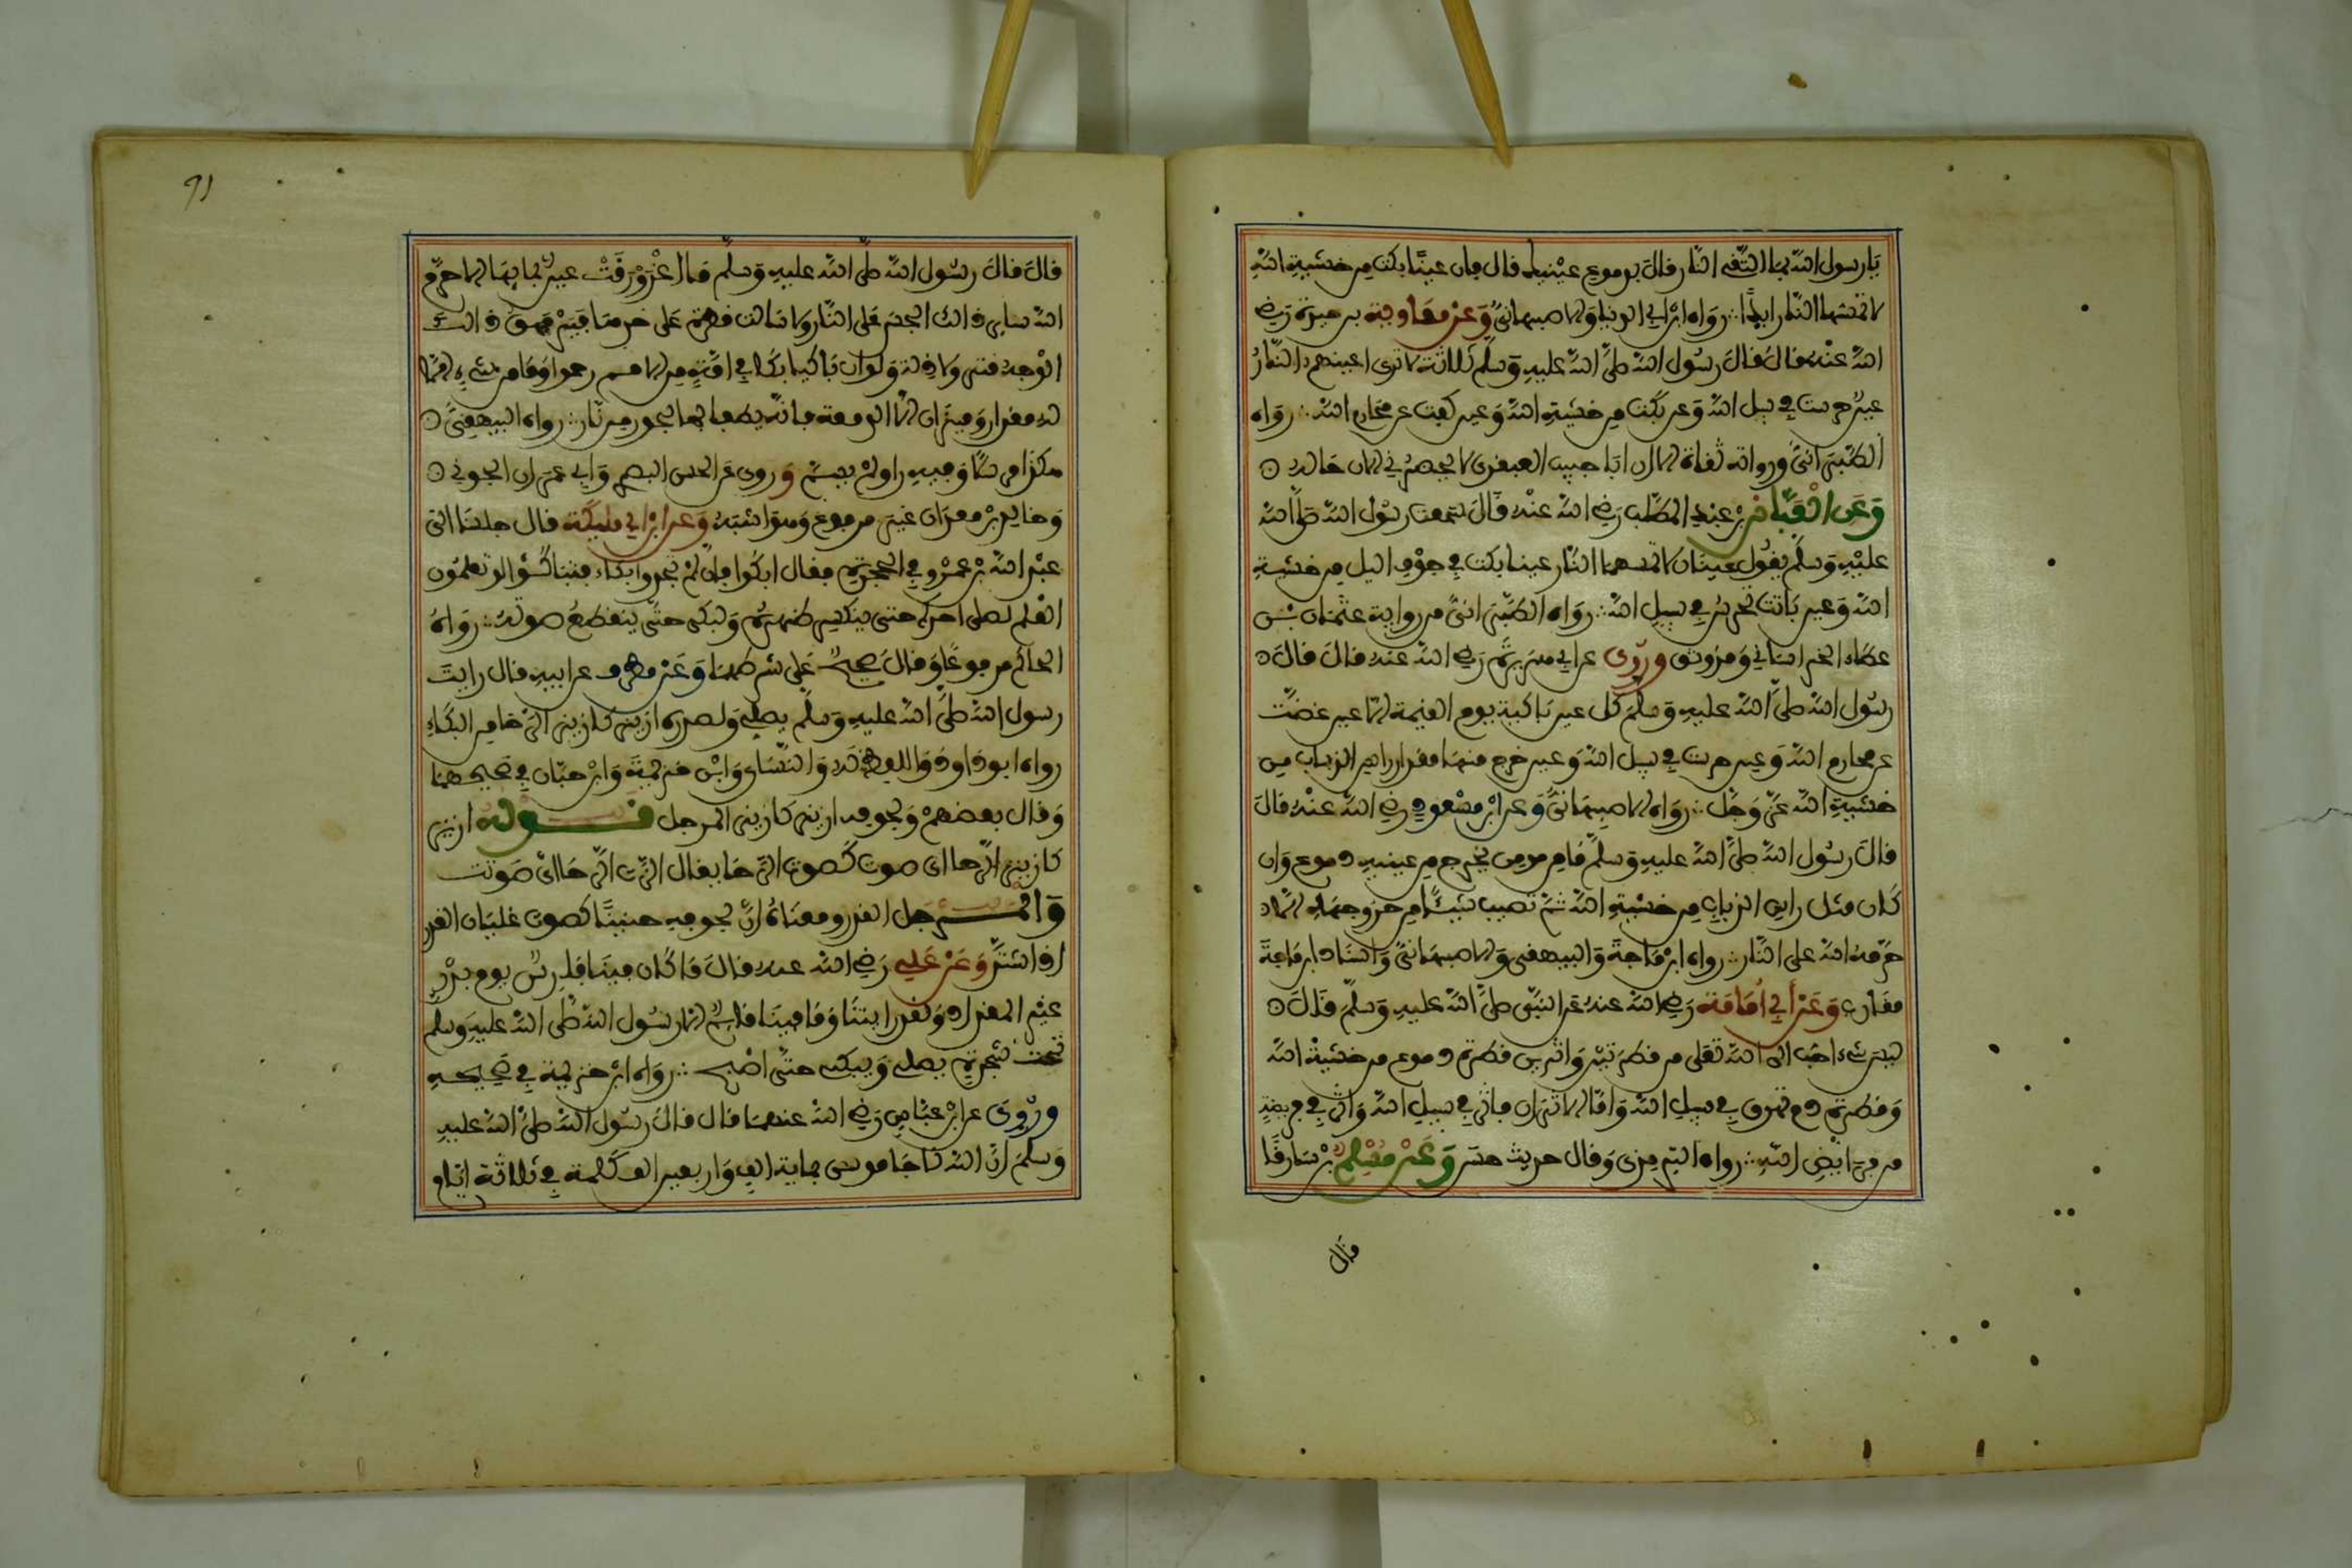 يارسول الله بما اتقي النار قال بدموع عينيك فإن عينا بكت من خشية الله
لا تمسها النار ابدا ∴ رواه ابن ابي الدنيا والاصبهاني وعن معاوية بن حيدة رضي
الله عنه قال قال رسول الله صلى الله عليه وسلم ثلاثة لا ترى اعينهم النار
عين حرست في سبيل الله وعين بكت من خشية الله وعين كفت عن محارم الله ∴ رواه
الطبراني ورواته ثقاة الا ان ابا حبيب العبقري لا يحضرني الان حاله
وعن العباس بن عبد المطلب رضي الله عنه قال سمعت رسول الله صلى الله
عليه وسلم يقول عينان لا تمسهما النار عين بكت في جوف اليل من خشية
الله وعين باتت تحرس في سبيل الله ∴ رواه الطبراني من رواية عثمان بن
عطاء الخراساني وقد وثق وروي عن ابي هريرة رضي الله عنه قال قال
رسول الله صلى الله عليه وسلم كل عين باكية يوم القيمة الا عين غضت
عن محارم الله وعين حرست في سبيل الله وعين خرج منها مقدار راس الذباب من
خشية الله عز وجل ∴ رواه الاصبهاني وعن ابن مسعود رضي الله عنه قال
قال رسول الله صلى الله عليه وسلم ما من مومن يخرج من عينيه دموع وان
كان مثل راس الذباب من خشية الله ثم تصيب شيئا من حر وجهه الا
حرمه الله على النار ∴ رواه ابن ماجة والبيهقي والاصبهاني واسناد ابن ماجة
مقارب وعن أبي أمامة رضي الله عنه عن النبي صلى الله عليه وسلم قال
ليس شيء احب الى الله تعلى من قطرتين واثرين قطرة دموع من خشية الله
وقطرة دم تهرق في سبيل الله واما الاثران فاثر في سبيل الله واثر في فريضة
من فرائض الله ∴ رواه الترمذي وقال حديث حسن وعن مسلم بن يسار
قال
91
قال قال رسول الله صلى الله عليه وسلم ما اغرورقت عين بمائها الا حرم
الله سائر ذالك الجسد على النار ولا سالت قطرة على خدها فيرهق ذالك
الوجه قتر ولا ذلة ولو ان باكيا بكا في امة من الامم رحموا وما من شيء الا
له مقدار وميزان الا الدمعة فانه يطفا بها بحور من نار ∴ رواه البيهقي
هكذا مرسلا وفيه راو لم يسم وروي عن الحسن البصري وابي عمران الجوني
وخالد بن معدان غير مرفوع وهو اشبه وعن ابن ابي مليكة قال جلسنا الى
عبد الله بن عمرو في الحجر فقال ابكوا فان لم تجدوا بكاء فتباكوا لو تعلمون
العلم لصلى احدكم حتى ينكسر ظهره ولبكى حتى ينقطع صوته ∴ رواه
الحاكم مرفوعا وقال صحيح على شرطهما وعن مطرف عن ابيه قال رايت
رسول الله صلى الله عليه وسلم يصلي ولصدره ازيز كازيز الرحا من البكاء
رواه ابو داود واللفظ له والنسائ وابن خزيمة وابن حبان في صحيحهما
وقال بعضهم ولجوفه ازيز كازيز المرجل قوله ازيز
كازيز الرحا اي صوت كصوت الرحا يقال ازت الرحا اي صوتت
والمرجل القدر ومعناه ان لجوفه حنينا كصوت غليان القدر
اذا اشتد وعن علي رضي الله عنه قال ما كان فينا فارس يوم بدر
غير المقداد ولقد رايتنا وما فينا قايم الا رسول الله صلى الله عليه وسلم
تحت شجرة يصلي ويبكي حتى اصبح ∴ رواه ابن خزيمة في صحيحه
وروي عن ابن عباس رضي الله عنهما قال قال رسول الله صلى الله عليه
وسلم ان الله ناجا موسى بماية الف واربعين الف كلمة في ثلاثة ايام